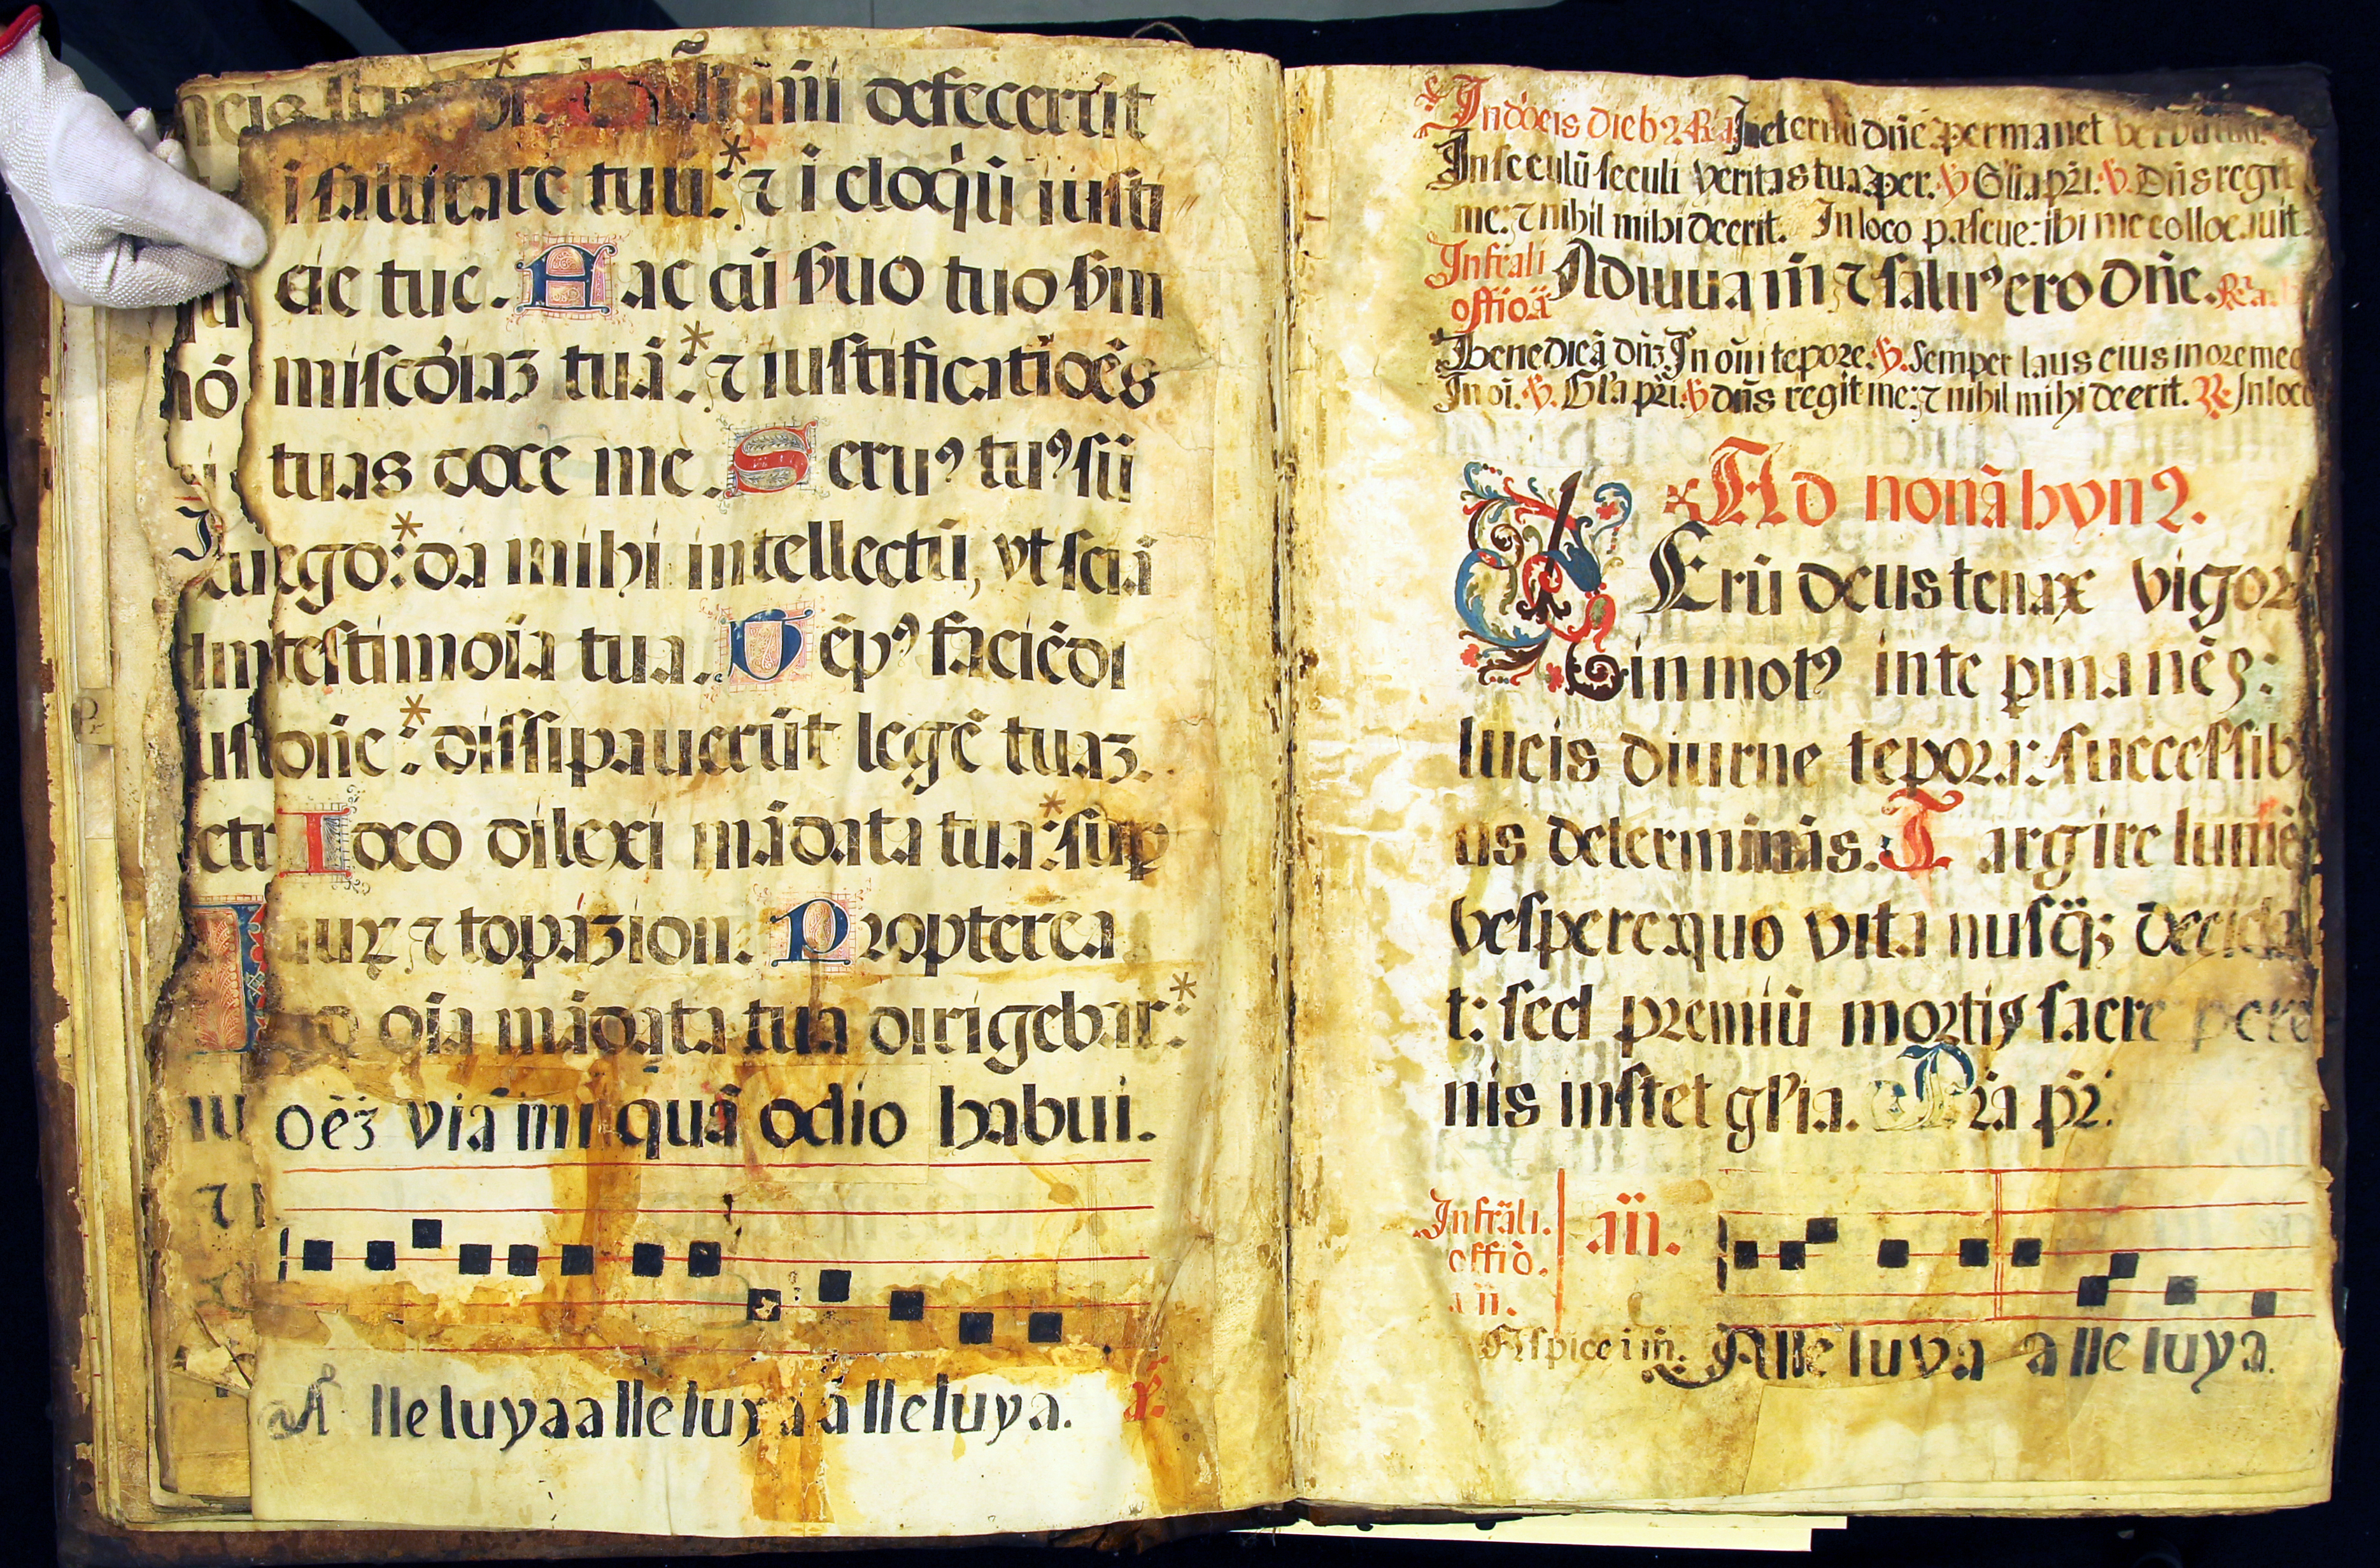 defecerūt
i salutare tuū: ⁊ i eloq̇ū iusti
cie tue. Hac cū ẞuo tuo ẞm
misc̄diaʒ tuā: ⁊ iustificatiōēs
tuas doce me. Seruꝰ tuꝰ sū
ego: da mihi intellectū, vt sciā
testimoīa tua. Tēpꝰ faciēdi
dn̄e: dissipauerūt legē tuaʒ.
Ideo dilexi mādata tua: suꝑ
auꝝ ⁊ topazion. Propterea
ad oīa mādata tua dirigebar:
oēʒ viā ini quā odio habui.
A lleluya alleluya alleluya.
In d̄oeis dieb2 R̄ In eternū dn̄e permanet
In seculū seculi veritas tua per. V̄ Glia pr̄i. V̄. Dn̄s regit
me: ⁊ nihil mihi deerit. In loco pascue: ibi me collocauit
Infrali offiōā Adiuua m̄ ⁊ saluꝰ ero dn̄e.
Benedicā dn̄ʒ In oi tēpore. V̄. Semper laus eius in ore meo
In oī. V̄. Gl'a pr̄i. V̄ dn̄s regit me: ⁊ nihil mihi deerit. R̄ In loco
Ad nonā hyn2.
Rerū deus tenax vigor
in motꝰ in te ꝑmanēs:
lucis diurne tēpora: successib
us determinās. Largire lumē
vespere quo vita nusq̄ʒ decida
t: sed premiū mortis sacre pere
nis instet gl'ia. Pr̄a pr̄.
Infrāli. an̄.
offiō.
an̄.
Aspice i m̄. Alleluya alleluya.